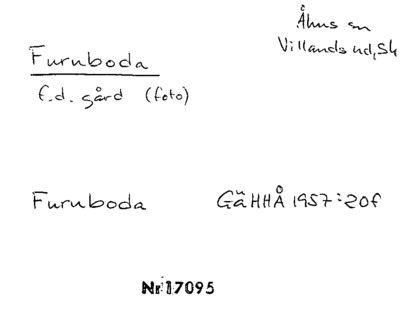 Åhus sn
Villands hd, Sk
Furuboda
f.d. gård (foto)
Furuboda GäHHÅ 1957:20f
Nr 17095